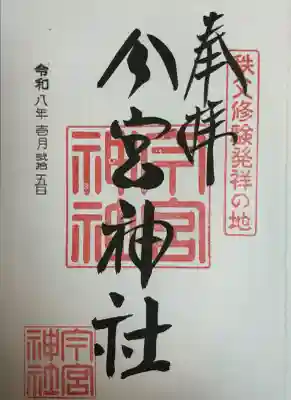 秩父修験発祥の地
奉拝
今宮神社
今宮
令和八年 壱月 弐拾五日
今宮
神社